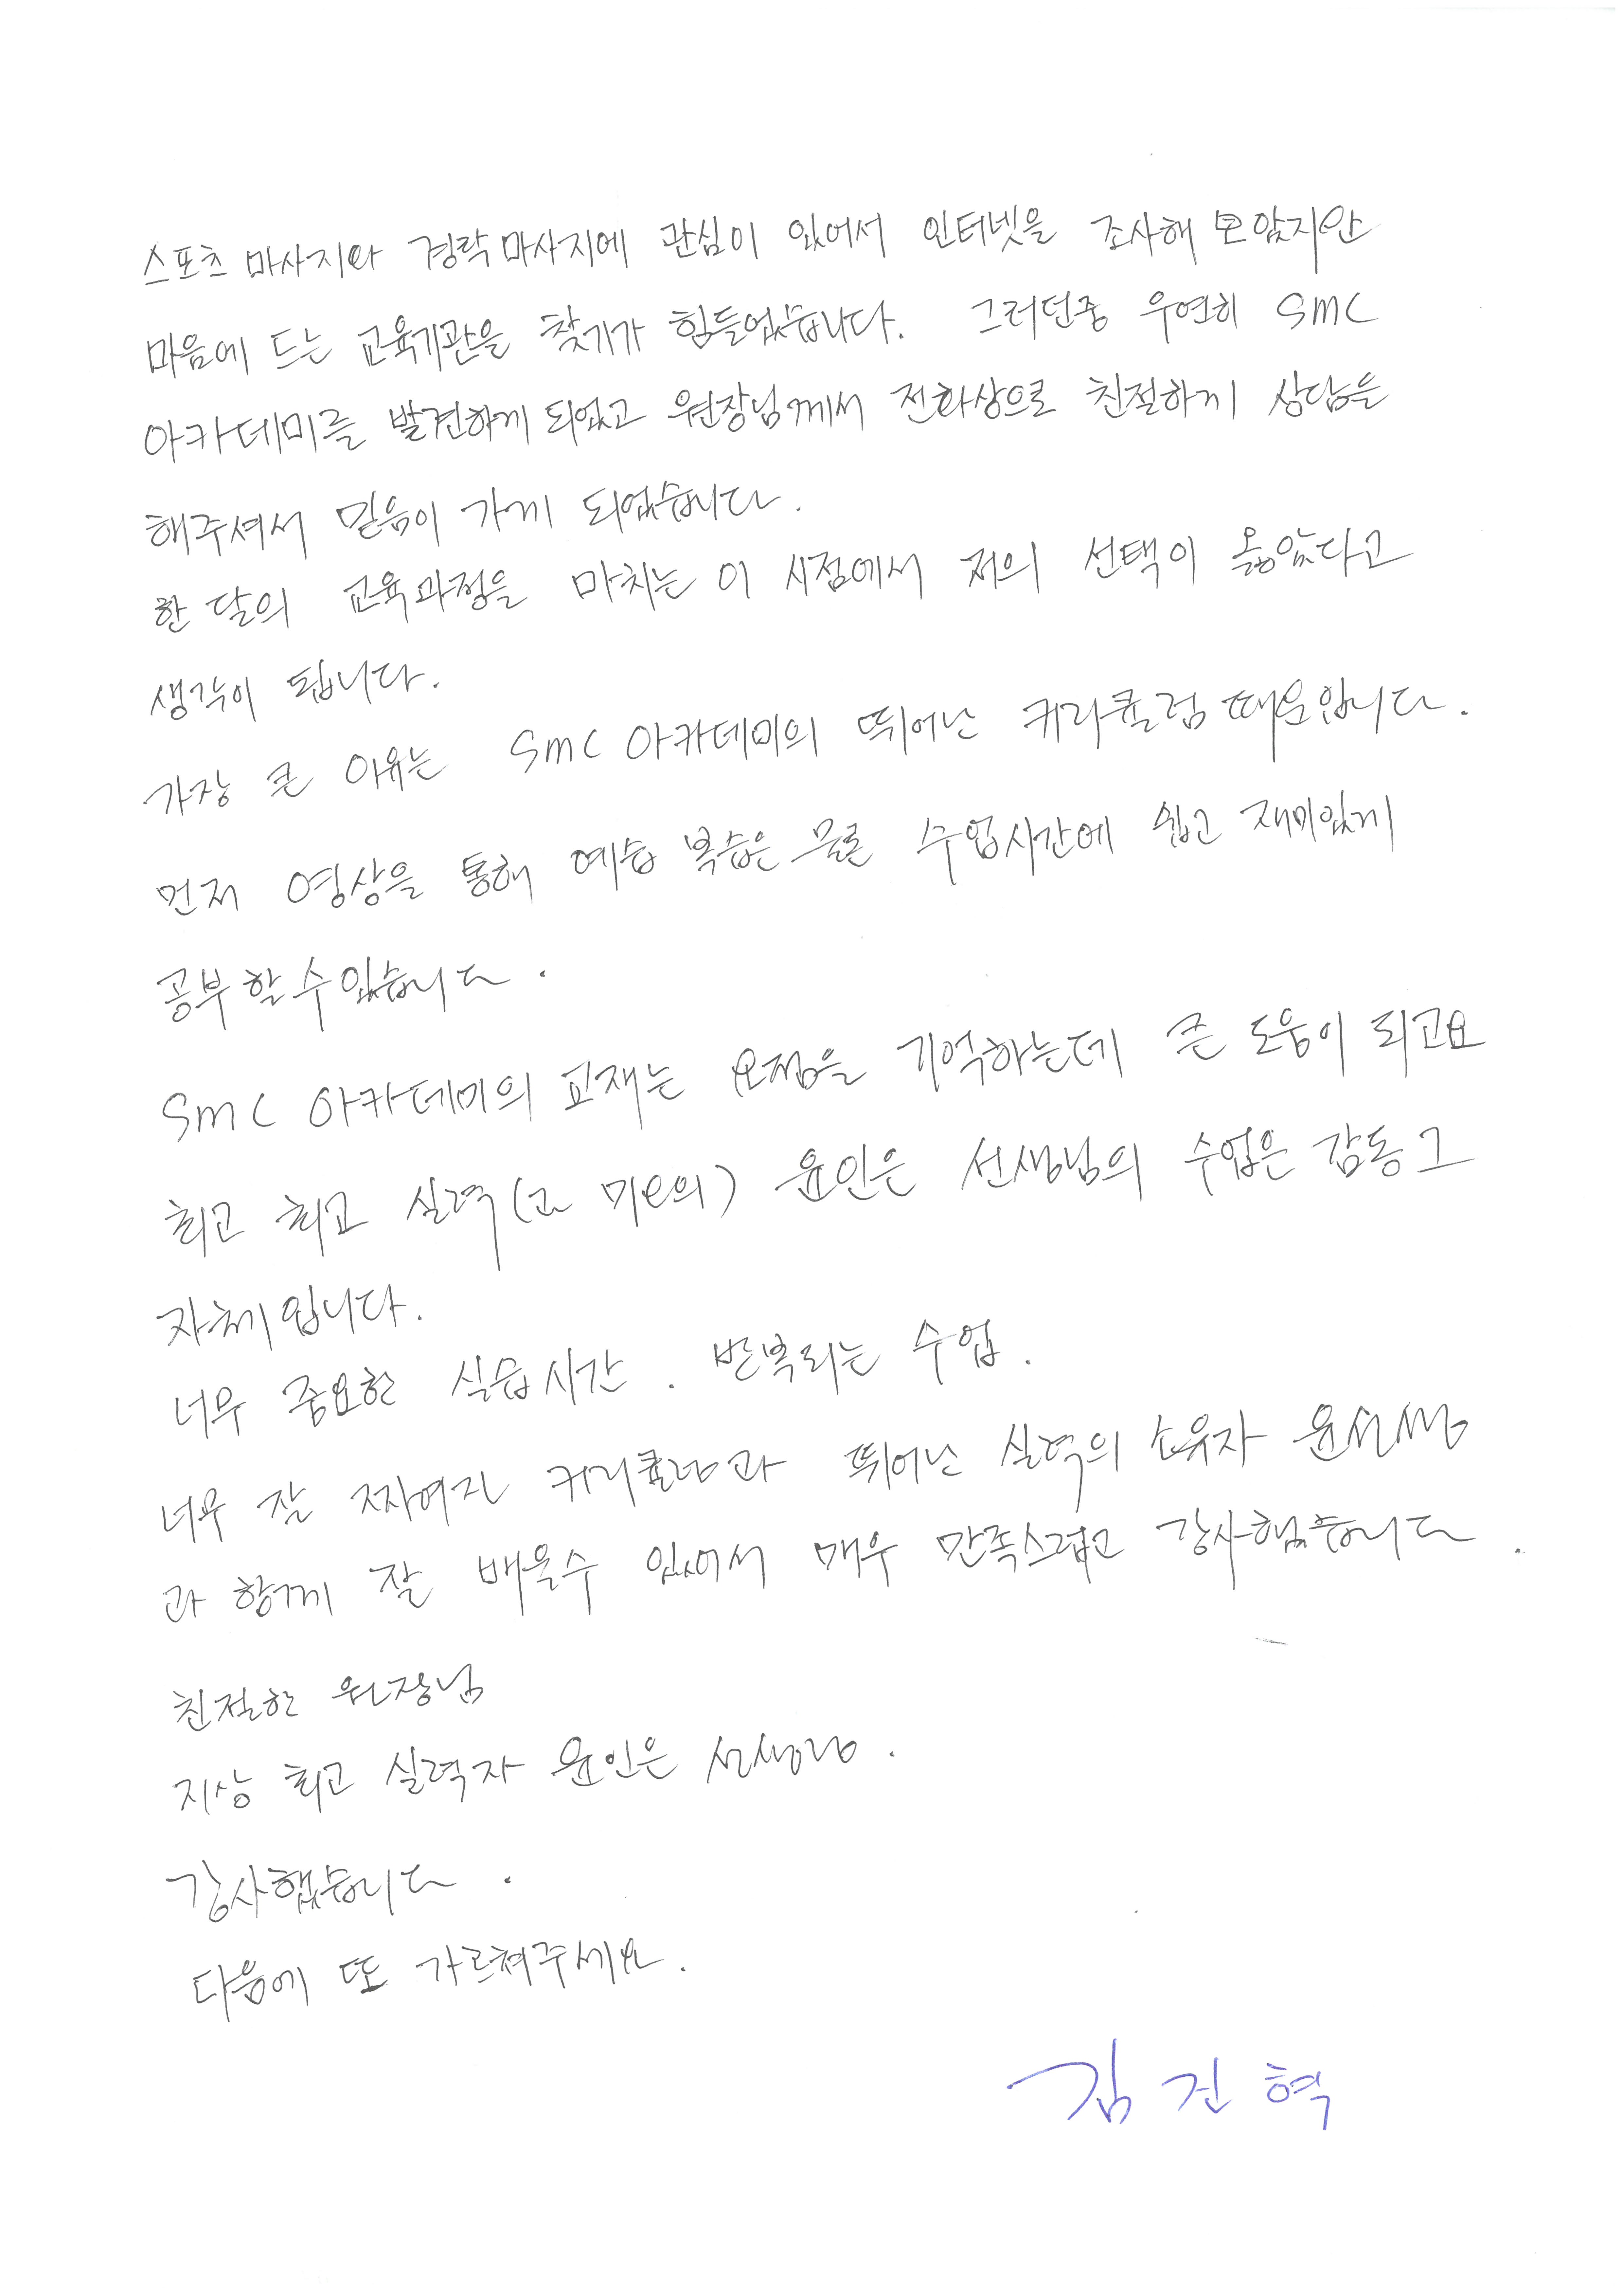 스포츠 마사지와 경락 마사지에 관심이 있어서 인터넷을 조사해 보았지만
마음에 드는 교육기관을 찾기가 힘들었습니다. 그러던중 우연히 SMC
아카데미를 발견하게 되었고 원장님께서 전화상으로 친절하게 상담을
해주셔서 믿음이 가게 되었습니다.
한 달의 교육과정을 마치는 이 시점에서 저의 선택이 옳았다고
생각이 됩니다.
가장 큰 이유는 SMC 아카데미의 뛰어난 커리큘럼 때문입니다.
먼저 영상을 통해 예습 복습은 물론 수업시간에 쉽고 재미있게
공부할 수 있습니다.
SMC 아카데미의 교재는 요점을 기억하는데 큰 도움이 되고요
최고 최고 실력(과 미모의) 윤인은 선생님의 수업은 감동 그
자체입니다.
너무 중요한 실습시간. 반복되는 수업.
너무 잘 짜여진 커리큘럼과 뛰어난 실력의 소유자 윤선생님
과 함께 잘 배울수 있어서 매우 만족스럽고 감사했습니다.
친절한 원장님
지상 최고 실력자 윤인은 선생님.
감사했습니다.
다음에 또 가르쳐주세요.
김건혁